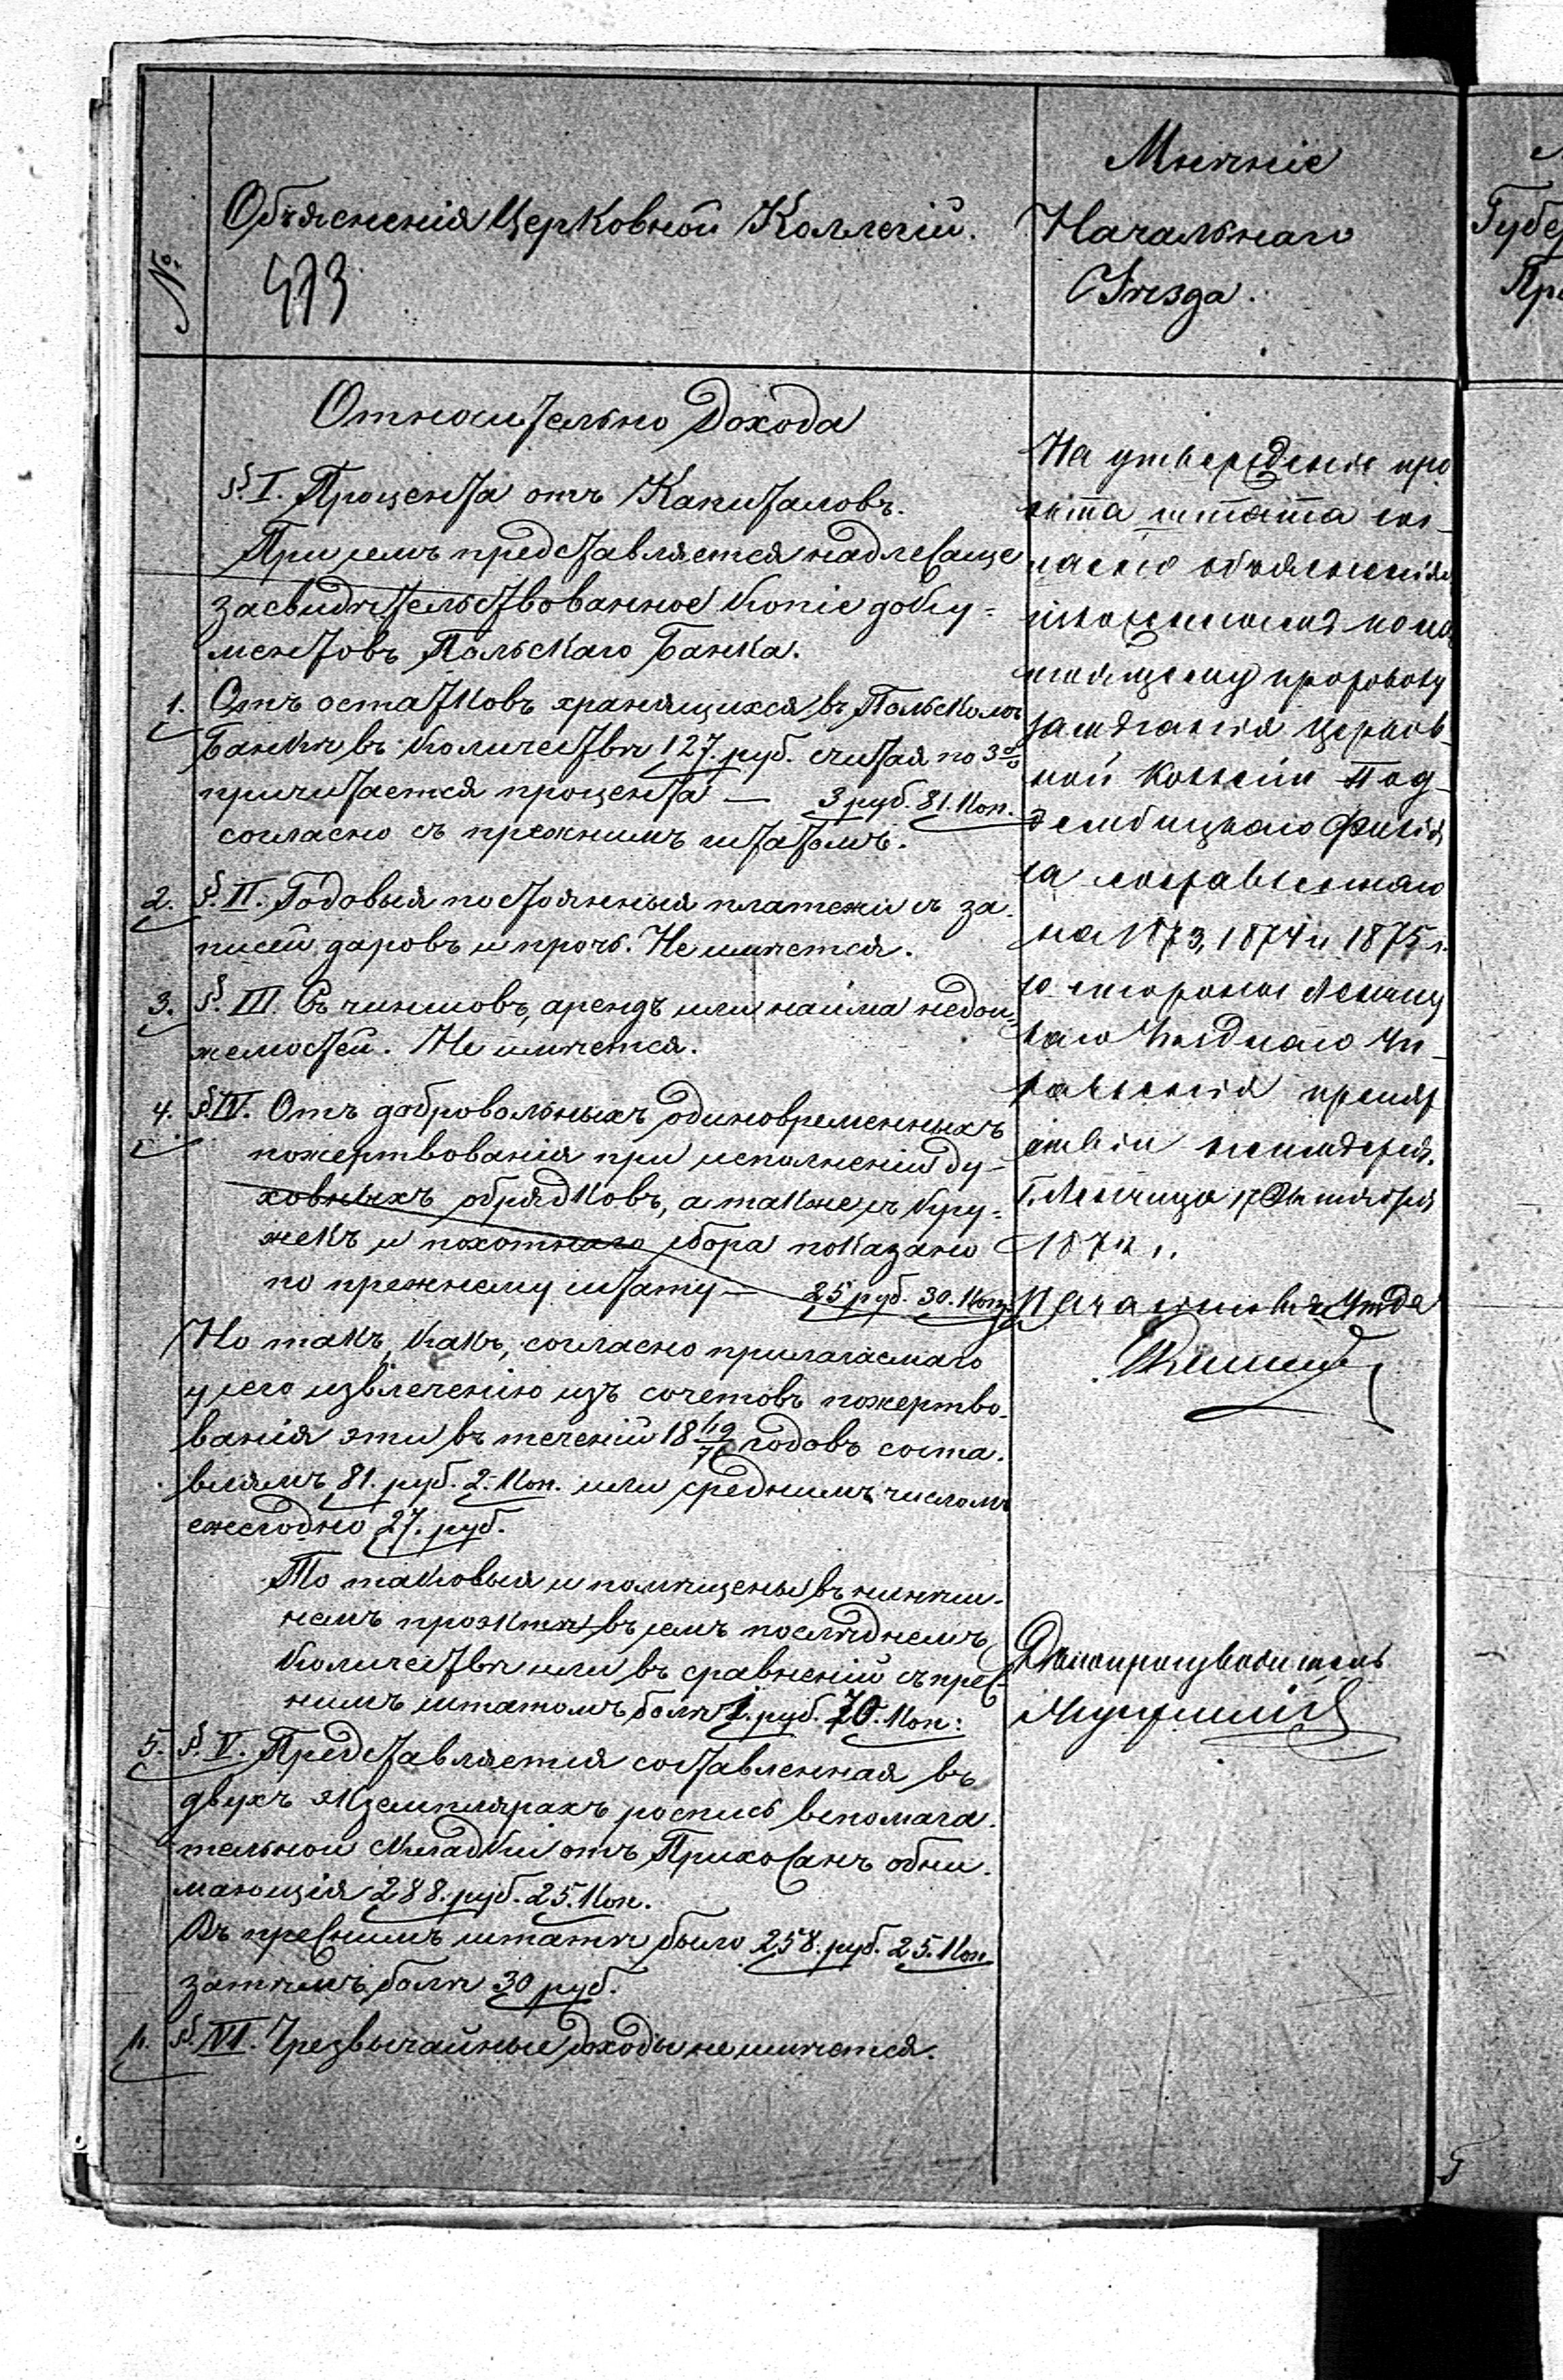 №.
Объясненія Церковной Коллегіи.
Мнѣніе
Начальнаго
Уѣзда.
Губе
Относительно Дохода
§. I. Процента отъ Капиталовъ.
При семъ представляется надлежаще
засвидѣтельствованное копіе доку-
ментовъ Польскаго Банка.
1. Отъ остатковъ хранящихся въ Польскомъ
Банкѣ въ количествѣ 127. руб. считая по 3%
причитается процента — 3 руб. 81. коп.
согласно съ прежнимъ штатомъ.
2. §. II. Годовыя постоянныя платежи съ за-
писей, даровъ и прочь. Не имѣется.
3. §. III. Съ чиншовъ, арендъ или найма недви-
жемостей. Не имѣется.
4. §. IV. Отъ добровольныхъ одиновременныхъ
пожертвованія при исполненіи ду-
ховныхъ обрядковъ, а также съ кру-
жекъ и похотнаго сбора показано
по прежнему штату — 25 руб. 30. коп.
Но такъ, какъ, согласно прилагаемаго
у сего извлеченію изъ счетовъ пожертво-
ванія эти въ теченіи 18 69/71 годовъ соста-
вляютъ 81. руб. 2. коп. или среднимъ числомъ
ежегодно 27. руб.
То таковыя и помѣщены въ нинѣш-
немъ проэктѣ въ семъ послѣднемъ
количествѣ или въ сравненіи съ преж-
нимъ штатомъ болѣ 1. руб. 70. коп:
5. §. V. Представляется составленная въ
двухъ экземплярахъ роспись вспомага-
тельной складки отъ Прихожанъ обни-
мающія 288. руб. 25. коп.
Въ прежнимъ штатѣ было 258. руб. 25. коп
затѣмъ болѣ 30 руб.
§. VI. Чрезвычайные доходы не имѣется.
На утвержденіе про
екта штата сог-
ласно объясненія
изложеннаго
протоколу
засѣданія церков-
ной Коллегіи Под-
дембицкаго Филія
ла составленнаго
на 1873, 1874 и 1875 г.
со стороны Ленчиц
каго Уѣзднаго Уп-
равленія препят
ствій не имѣется.
Г. Ленчица Октября
1872 г.
Начальникъ Уѣзда
Дѣлопроизводитель